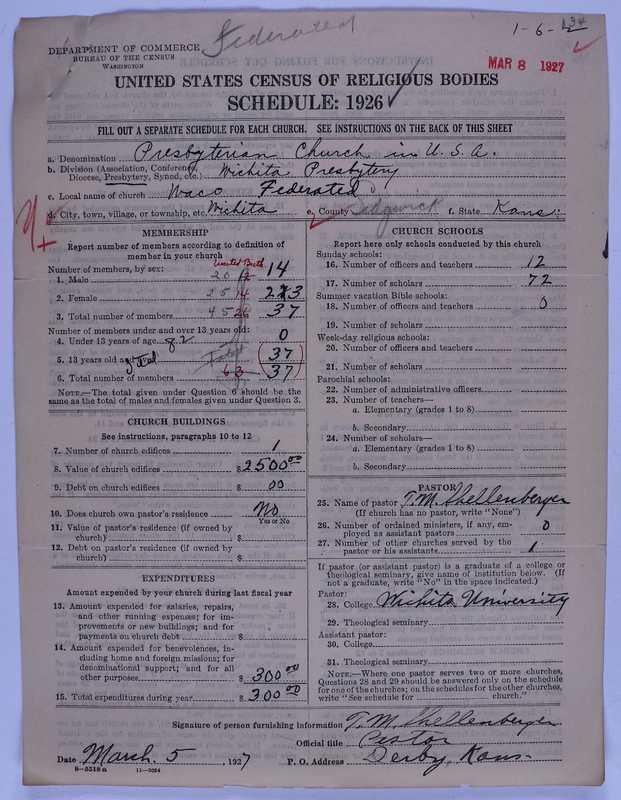 Federated
1-6-12
34
DEPARTMENT OF COMMERCE
BUREAU OF THE CENSUS
WASHINGTON
MAR 8 1927
UNITED STATES CENSUS OF RELIGIOUS BODIES
SCHEDULE: 1926
FILL OUT A SEPARATE SCHEDULE FOR EACH CHURCH. SEE INSTRUCTIONS ON THE BACK OF THIS SHEET
a. Denomination Presbyterian Church in U.S.A.
b. Division (Association, Conference, Diocese, Presbytery, Synod, etc.) Wichita Presbytery
c. Local name of church Waco Federated
d. City, town, village, or township, etc. Wichita e. County Sedgwick f. State Kans.
MEMBERSHIP
Report number of members according to definition of
member in your church
United Breth.
Number of members, by sex:
1. Male 20 12 14
2. Female 25 14 23
3. Total number of members 45 26 37
Number of members under and over 13 years old:
4. Under 13 years of age 82 0
5. 13 years old and over Total (37)
6. Total number of members 63 (37)
NOTE.—The total given under Question 6 should be the
same as the total of males and females given under Question 3.
CHURCH BUILDINGS
See instructions, paragraphs 10 to 12
7. Number of church edifices 1
8. Value of church edifices $2500.00
9. Debt on church edifices $ 00
10. Does church own pastor's residence? No
Yes or No
11. Value of pastor's residence (if owned by
church) $
12. Debt on pastor's residence (if owned by
church) $
EXPENDITURES
Amount expended by your church during last fiscal year
13. Amount expended for salaries, repairs,
and other running expenses; for im-
provements or new buildings; and for
payments on church debt $
14. Amount expended for benevolences, in-
cluding home and foreign missions; for
denominational support; and for all
other purposes $300.00
15. Total expenditures during year $300.00
CHURCH SCHOOLS
Report here only schools conducted by this church
Sunday schools:
16. Number of officers and teachers 12
17. Number of scholars 72
Summer vacation Bible schools:
18. Number of officers and teachers 0
19. Number of scholars
Week-day religious schools:
20. Number of officers and teachers
21. Number of scholars
Parochial schools:
22. Number of administrative officers
23. Number of teachers—
a. Elementary (grades 1 to 8)
b. Secondary
24. Number of scholars—
a. Elementary (grades 1 to 8)
b. Secondary
PASTOR
25. Name of pastor T. M. Shellenberger
(If church has no pastor, write "None")
26. Number of ordained ministers, if any, em-
ployed as assistant pastors 0
27. Number of other churches served by the
pastor or his assistants 1
If pastor (or assistant pastor) is a graduate of a college or
theological seminary, give name of institution below. (If
not a graduate, write "No" in the space indicated.)
Pastor:
28. College Wichita University
29. Theological seminary
Assistant pastor:
30. College
31. Theological seminary
NOTE.—Where one pastor serves two or more churches,
Questions 28 and 29 should be answered only on the schedule
for one of the churches; on the schedules for the other churches,
write "See schedule for church."
Signature of person furnishing information T. M. Shellenberger
Official title Pastor
Date March 5, 1927 P. O. Address Derby, Kans.
8-5518 a 11-9564